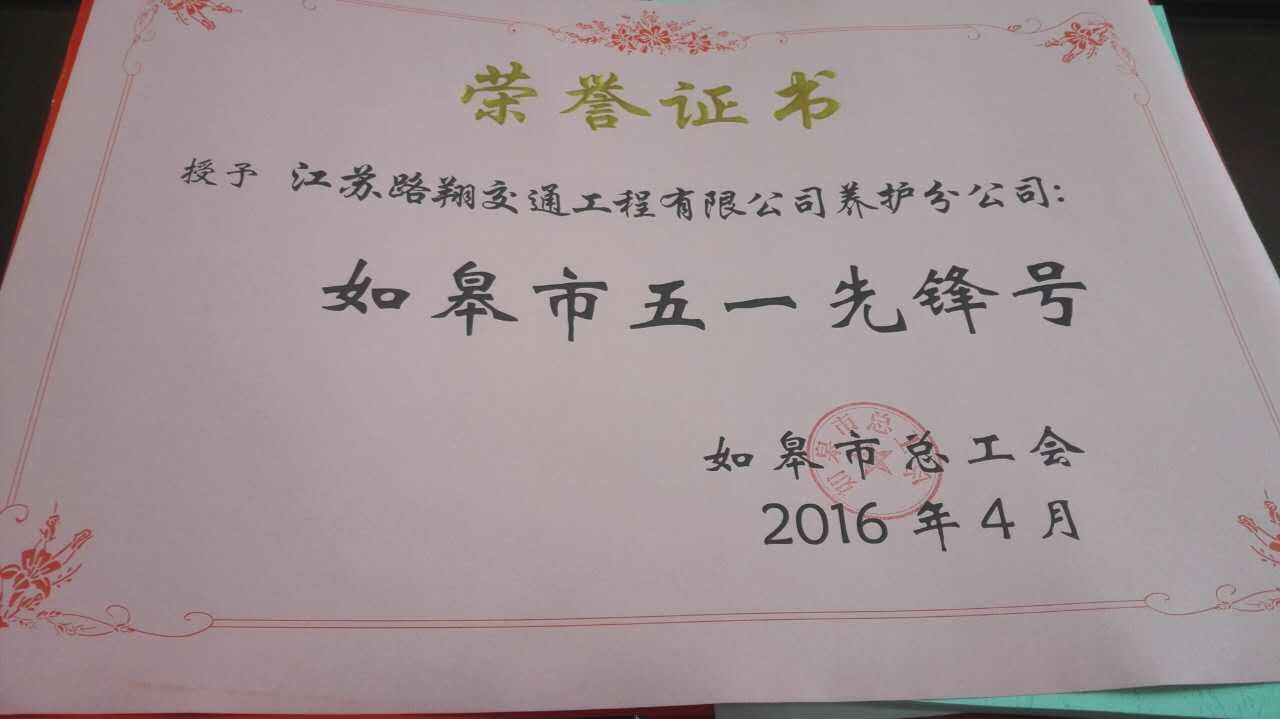 荣誉证书
授予 江苏路翔交通工程有限公司养护分公司:
如皋市五一先锋号
如皋市总工会
2016年4月
如皋市总工会